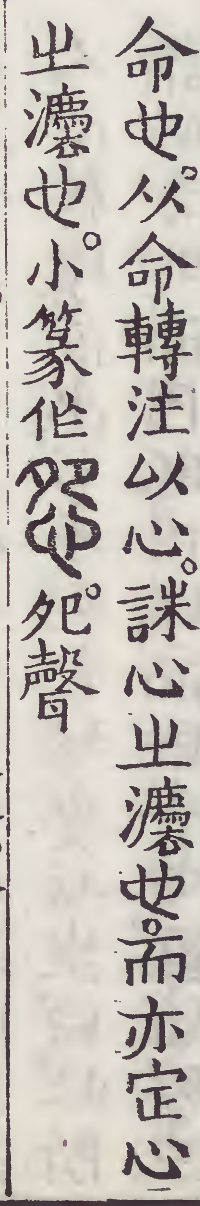 命也。从命轉注以心。誅心㞢灋也。而亦定心
㞢灋也。小篆作怨。夗聲